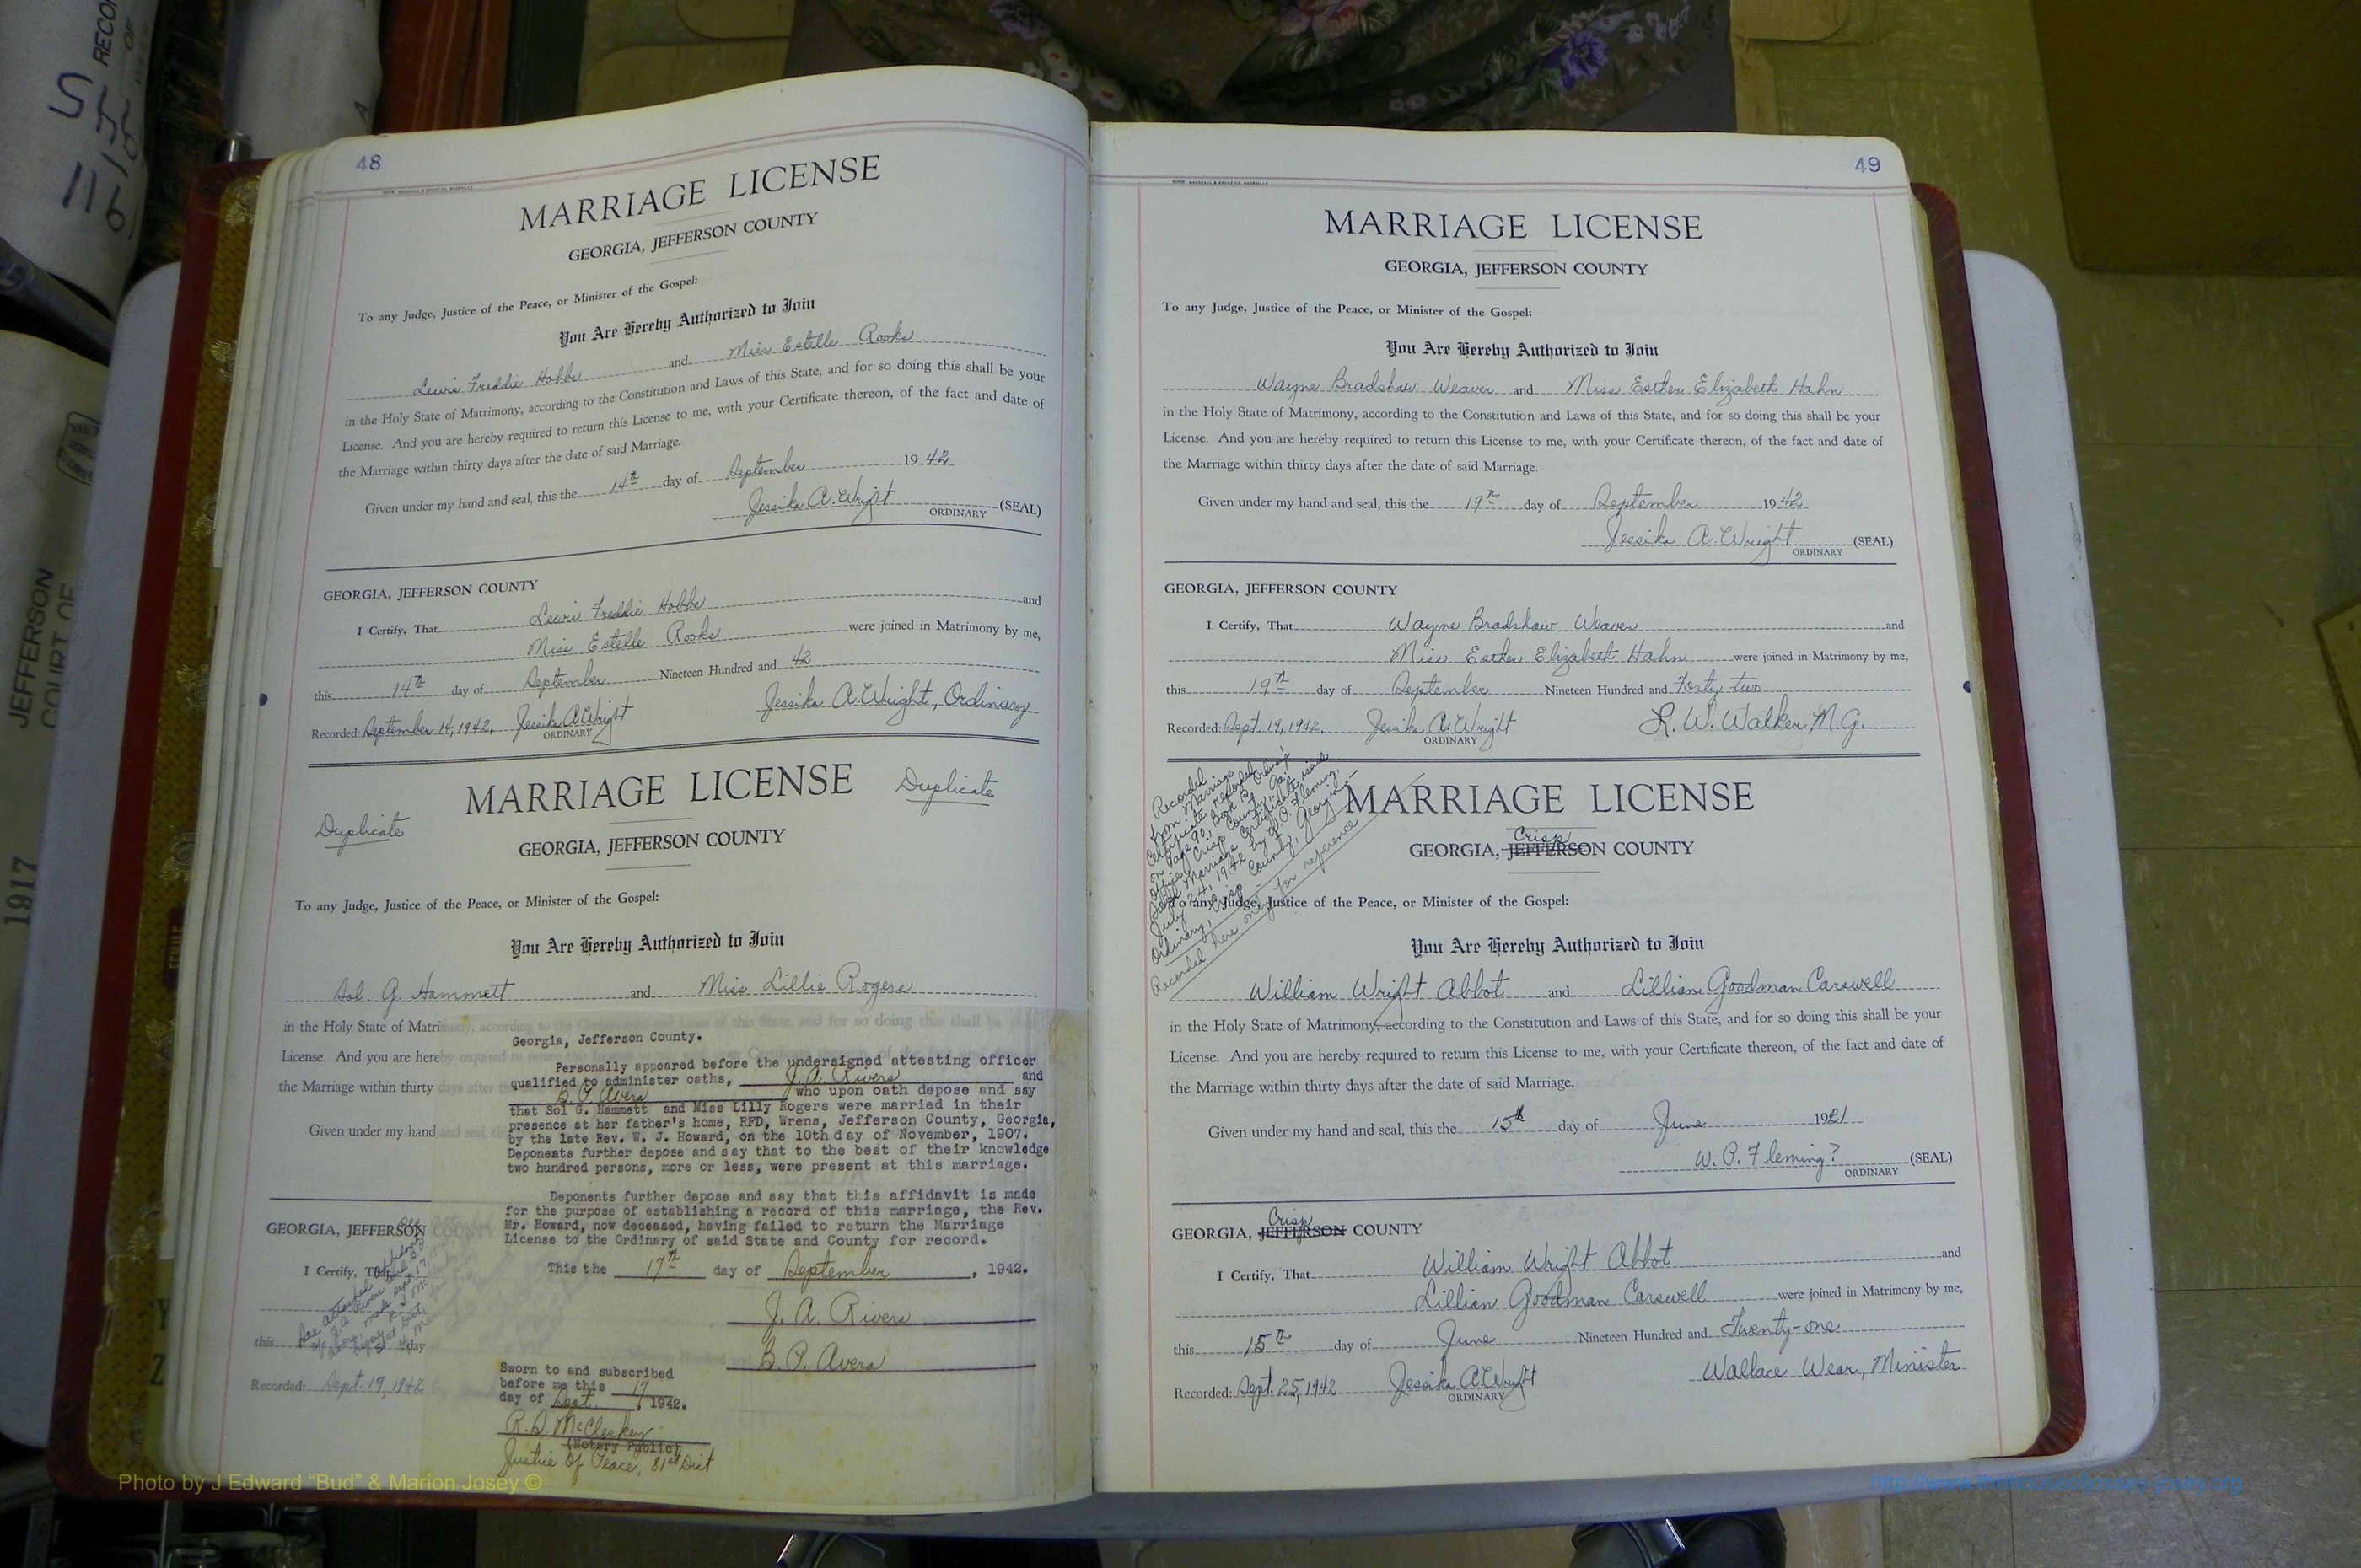 48
MARRIAGE LICENSE
GEORGIA, JEFFERSON COUNTY
To any Judge, Justice of the Peace, or Minister of the Gospel:
You Are Hereby Authorized to Join
Lewis Freddie Hobbs and Miss Estelle Rooks
in the Holy State of Matrimony, according to the Constitution and Laws of this State, and for so doing this shall be your
License. And you are hereby required to return this License to me, with your Certificate thereon, of the fact and date of
the Marriage within thirty days after the date of said Marriage.
Given under my hand and seal, this the 14th day of September 1942
Jessika A. Wright (SEAL)
ORDINARY
GEORGIA, JEFFERSON COUNTY
I Certify, That Lewis Freddie Hobbs and
Miss Estelle Rooks were joined in Matrimony by me,
this 14th day of September Nineteen Hundred and 42
Recorded: September 14, 1942. Jessika A. Wright Jessika A. Wright, Ordinary
ORDINARY
Duplicate MARRIAGE LICENSE Duplicate
GEORGIA, JEFFERSON COUNTY
To any Judge, Justice of the Peace, or Minister of the Gospel:
You Are Hereby Authorized to Join
Sol. G. Hammett and Miss Lillie Rogers
in the Holy State of Matrimony, according to the Constitution and Laws of this State, and for so doing this shall be
License. And you are hereby required to return this License
the Marriage within thirty days after
Given under my hand and seal, this
Georgia, Jefferson County.
Personally appeared before the undersigned attesting officer
qualified to administer oaths, J. A. Rivers and
B. P. Avera who upon oath depose and say
that Sol G. Hammett and Miss Lilly Rogers were married in their
presence at her father's home, RFD, Wrens, Jefferson County, Georgia,
by the late Rev. W. J. Howard, on the 10th day of November, 1907.
Deponents further depose and say that to the best of their knowledge
two hundred persons, more or less, were present at this marriage.
Deponents further depose and say that this affidavit is made
for the purpose of establishing a record of this marriage, the Rev.
Mr. Howard, now deceased, having failed to return the Marriage
License to the Ordinary of said State and County for record.
This the 17th day of September, 1942.
J. A. Rivers
B. P. Avera
Sworn to and subscribed
before me this 17
day of Sept., 1942.
R. S. McCleskey
(Notary Public)
Justice of Peace, 81st Dist
GEORGIA, JEFFERSON COUNTY
I Certify, That
this day
Recorded: Sept. 19, 1942
49
MARRIAGE LICENSE
GEORGIA, JEFFERSON COUNTY
To any Judge, Justice of the Peace, or Minister of the Gospel:
You Are Hereby Authorized to Join
Wayne Bradshaw Weaver and Miss Esther Elizabeth Hahn
in the Holy State of Matrimony, according to the Constitution and Laws of this State, and for so doing this shall be your
License. And you are hereby required to return this License to me, with your Certificate thereon, of the fact and date of
the Marriage within thirty days after the date of said Marriage.
Given under my hand and seal, this the 19th day of September 1942
Jessika A. Wright (SEAL)
ORDINARY
GEORGIA, JEFFERSON COUNTY
I Certify, That Wayne Bradshaw Weaver and
Miss Esther Elizabeth Hahn were joined in Matrimony by me,
this 19th day of September Nineteen Hundred and Forty two
Recorded: Sept. 19, 1942. Jessika A. Wright L. W. Walker, M.G.
ORDINARY
Recorded
from Marriage
Certificate recorded
on Page 90, Book 13, Ordinary
office, Crisp County, Ga.
Said Marriage Certificate issued
July 24, 1942 by W. P. Fleming,
Ordinary, Crisp County, Georgia
Recorded here only for reference
MARRIAGE LICENSE
Crisp
GEORGIA, JEFFERSON COUNTY
To any Judge, Justice of the Peace, or Minister of the Gospel:
You Are Hereby Authorized to Join
William Wright Abbot and Lillian Goodman Carswell
in the Holy State of Matrimony, according to the Constitution and Laws of this State, and for so doing this shall be your
License. And you are hereby required to return this License to me, with your Certificate thereon, of the fact and date of
the Marriage within thirty days after the date of said Marriage.
Given under my hand and seal, this the 15th day of June 1921
W. P. Fleming? (SEAL)
ORDINARY
Crisp
GEORGIA, JEFFERSON COUNTY
I Certify, That William Wright Abbot and
Lillian Goodman Carswell were joined in Matrimony by me,
this 15th day of June Nineteen Hundred and Twenty-one
Recorded: Sept. 25, 1942 Jessika A. Wright Wallace Wear, Minister
ORDINARY
JEFFERSON
COURT OF
1917
Photo by J Edward “Bud” & Marion Josey ©